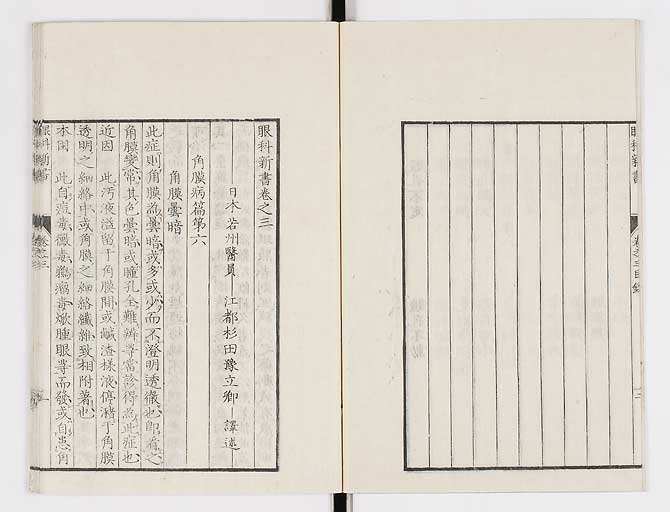 眼科新書
卷之三目錄
眼科新書卷之三
日本若州醫員 江都杉田豫立卿 譯述
角膜病篇第六
角膜曇暗
此症則角膜為曇暗或多或少而不澄明透徹也即看之
角膜變常其色曇暗或瞳孔全難辨尋當診得為此症也
近因 此污液溢留于角膜間或鹹渣樣液停瀦于角膜
透明之細絡中或角膜之細絡纖維致相附著也
本因 此自痘毒黴毒瘰癧毒焮腫眼等而發或自患角
眼科新書
卷之三